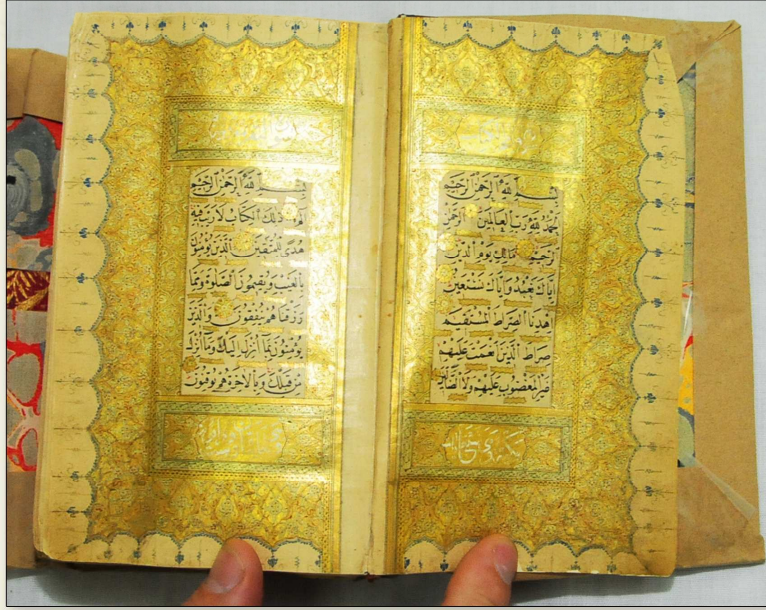 بسم الله الرحمن الرحيم
الحمد لله رب العالمين الرحمن
الرحيم مالك يوم الدين
إياك نعبد وإياك نستعين
اهدنا الصراط المستقيم
صراط الذين أنعمت عليهم
غير المغضوب عليهم ولا الضالين
بسم الله الرحمن الرحيم
الم ذلك الكتاب لا ريب فيه
هدى للمتقين الذين يؤمنون
بالغيب ويقيمون الصلوة ومما
رزقناهم ينفقون والذين
يؤمنون بما أنزل إليك وما أنزل
من قبلك وبالآخرة هم يوقنون